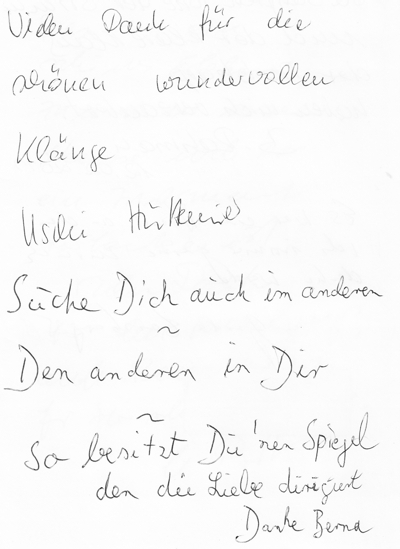 Vielen Dank für die
schönen wundervollen
Klänge
Suche Dich auch im anderen
~
Den anderen in Dir
~
So besitzt Du 'nen Spiegel
den die Liebe dirigiert
Danke Bernd